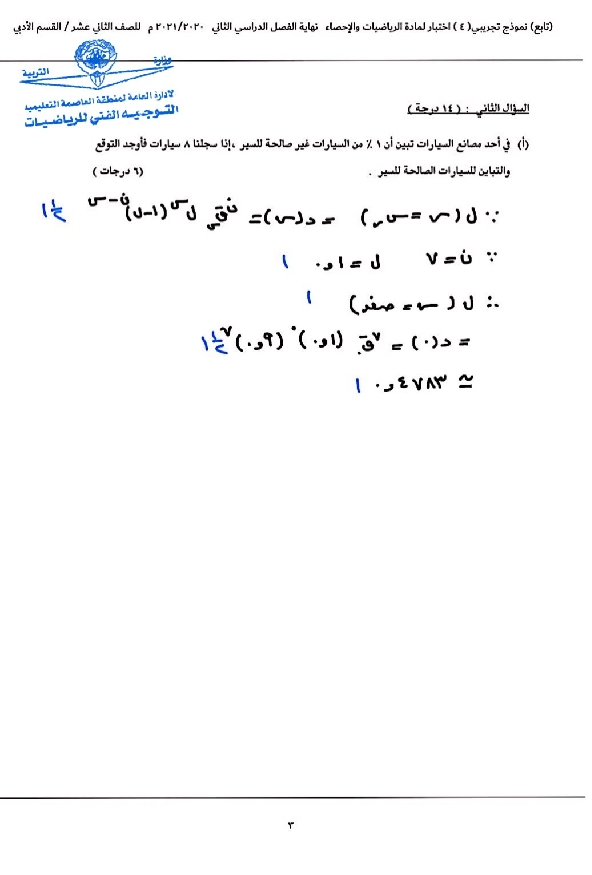 (تابع) نموذج تجريبي( ٤ ) اختبار لمادة الرياضيات والإحصاء نهاية الفصل الدراسي الثاني ٢٠٢١/٢٠٢٠ م للصف الثاني عشر / القسم الأدبي
وزارة
التربية
الإدارة العامة لمنطقة العاصمة التعليمية
التوجيه الفني للرياضيات
السؤال الثاني : ( ١٤ درجة )
(أ) في أحد مصانع السيارات تبين أن ١ ٪ من السيارات غير صالحة للسير ،إذا سجلنا ٨ سيارات فأوجد التوقع
والتباين للسيارات الصالحة للسير . (٦ درجات )
∵ ل ( س = سر ) = د(س) = ن ق س ل س (١-ل) ن-س ١ ١/٢
∵ ن = ٧ ل = ٠,١ ١
∴ ل ( س = صفر ) ١
= د(٠) = ٧ ق ٠ (٠,١)٠ (٠,٩)٧ ١ ١/٢
≃ ٠,٤٧٨٣ ١
٣